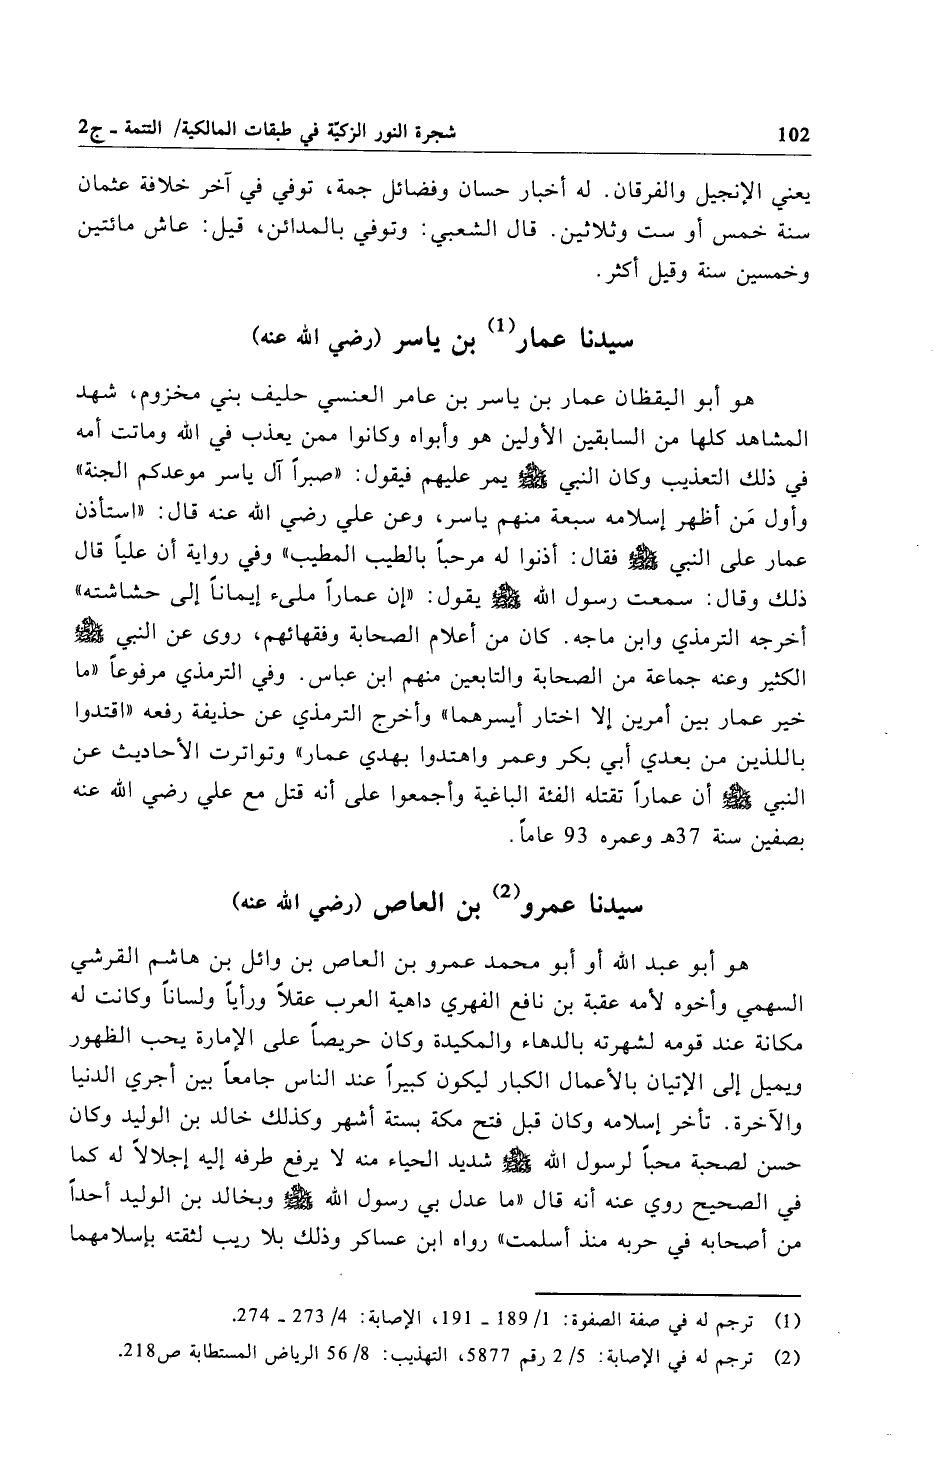 102 شجرة النور الزكيّة في طبقات المالكية/ التتمة ـ ج2
يعني الإنجيل والفرقان. له أخبار حسان وفضائل جمة، توفي في آخر خلافة عثمان
سنة خمس أو ست وثلاثين. قال الشعبي: وتوفي بالمدائن، قيل: عاش مائتين
وخمسين سنة وقيل أكثر.
سيدنا عمار(1) بن ياسر (رضي الله عنه)
هو أبو اليقظان عمار بن ياسر بن عامر العنسي حليف بني مخزوم، شهد
المشاهد كلها من السابقين الأولين هو وأبواه وكانوا ممن يعذب في الله وماتت أمه
في ذلك التعذيب وكان النبي ﷺ يمر عليهم فيقول: «صبراً آل ياسر موعدكم الجنة»
وأول مَن أظهر إسلامه سبعة منهم ياسر، وعن علي رضي الله عنه قال: «استأذن
عمار على النبي ﷺ فقال: أذنوا له مرحباً بالطيب المطيب» وفي رواية أن علياً قال
ذلك وقال: سمعت رسول الله ﷺ يقول: «إن عماراً ملىء إيماناً إلى حشاشته»
أخرجه الترمذي وابن ماجه. كان من أعلام الصحابة وفقهائهم، روى عن النبي ﷺ
الكثير وعنه جماعة من الصحابة والتابعين منهم ابن عباس. وفي الترمذي مرفوعاً «ما
خير عمار بين أمرين إلا اختار أيسرهما» وأخرج الترمذي عن حذيفة رفعه «اقتدوا
باللذين من بعدي أبي بكر وعمر واهتدوا بهدي عمار» وتواترت الأحاديث عن
النبي ﷺ أن عماراً تقتله الفئة الباغية وأجمعوا على أنه قتل مع علي رضي الله عنه
بصفين سنة 37هـ وعمره 93 عاماً.
سيدنا عمرو(2) بن العاص (رضي الله عنه)
هو أبو عبد الله أو أبو محمد عمرو بن العاص بن وائل بن هاشم القرشي
السهمي وأخوه لأمه عقبة بن نافع الفهري داهية العرب عقلاً ورأياً ولساناً وكانت له
مكانة عند قومه لشهرته بالدهاء والمكيدة وكان حريصاً على الإمارة يحب الظهور
ويميل إلى الإتيان بالأعمال الكبار ليكون كبيراً عند الناس جامعاً بين أجري الدنيا
والآخرة. تأخر إسلامه وكان قبل فتح مكة بستة أشهر وكذلك خالد بن الوليد وكان
حسن لصحبة محباً لرسول الله ﷺ شديد الحياء منه لا يرفع طرفه إليه إجلالاً له كما
في الصحيح روي عنه أنه قال «ما عدل بي رسول الله ﷺ وبخالد بن الوليد أحداً
من أصحابه في حربه منذ أسلمت» رواه ابن عساكر وذلك بلا ريب لثقته بإسلامهما
(1) ترجم له في صفة الصفوة: 1/ 189 ـ 191، الإصابة: 4/ 273 ـ 274.
(2) ترجم له في الإصابة: 5/ 2 رقم 5877، التهذيب: 8/ 56 الرياض المستطابة ص218.